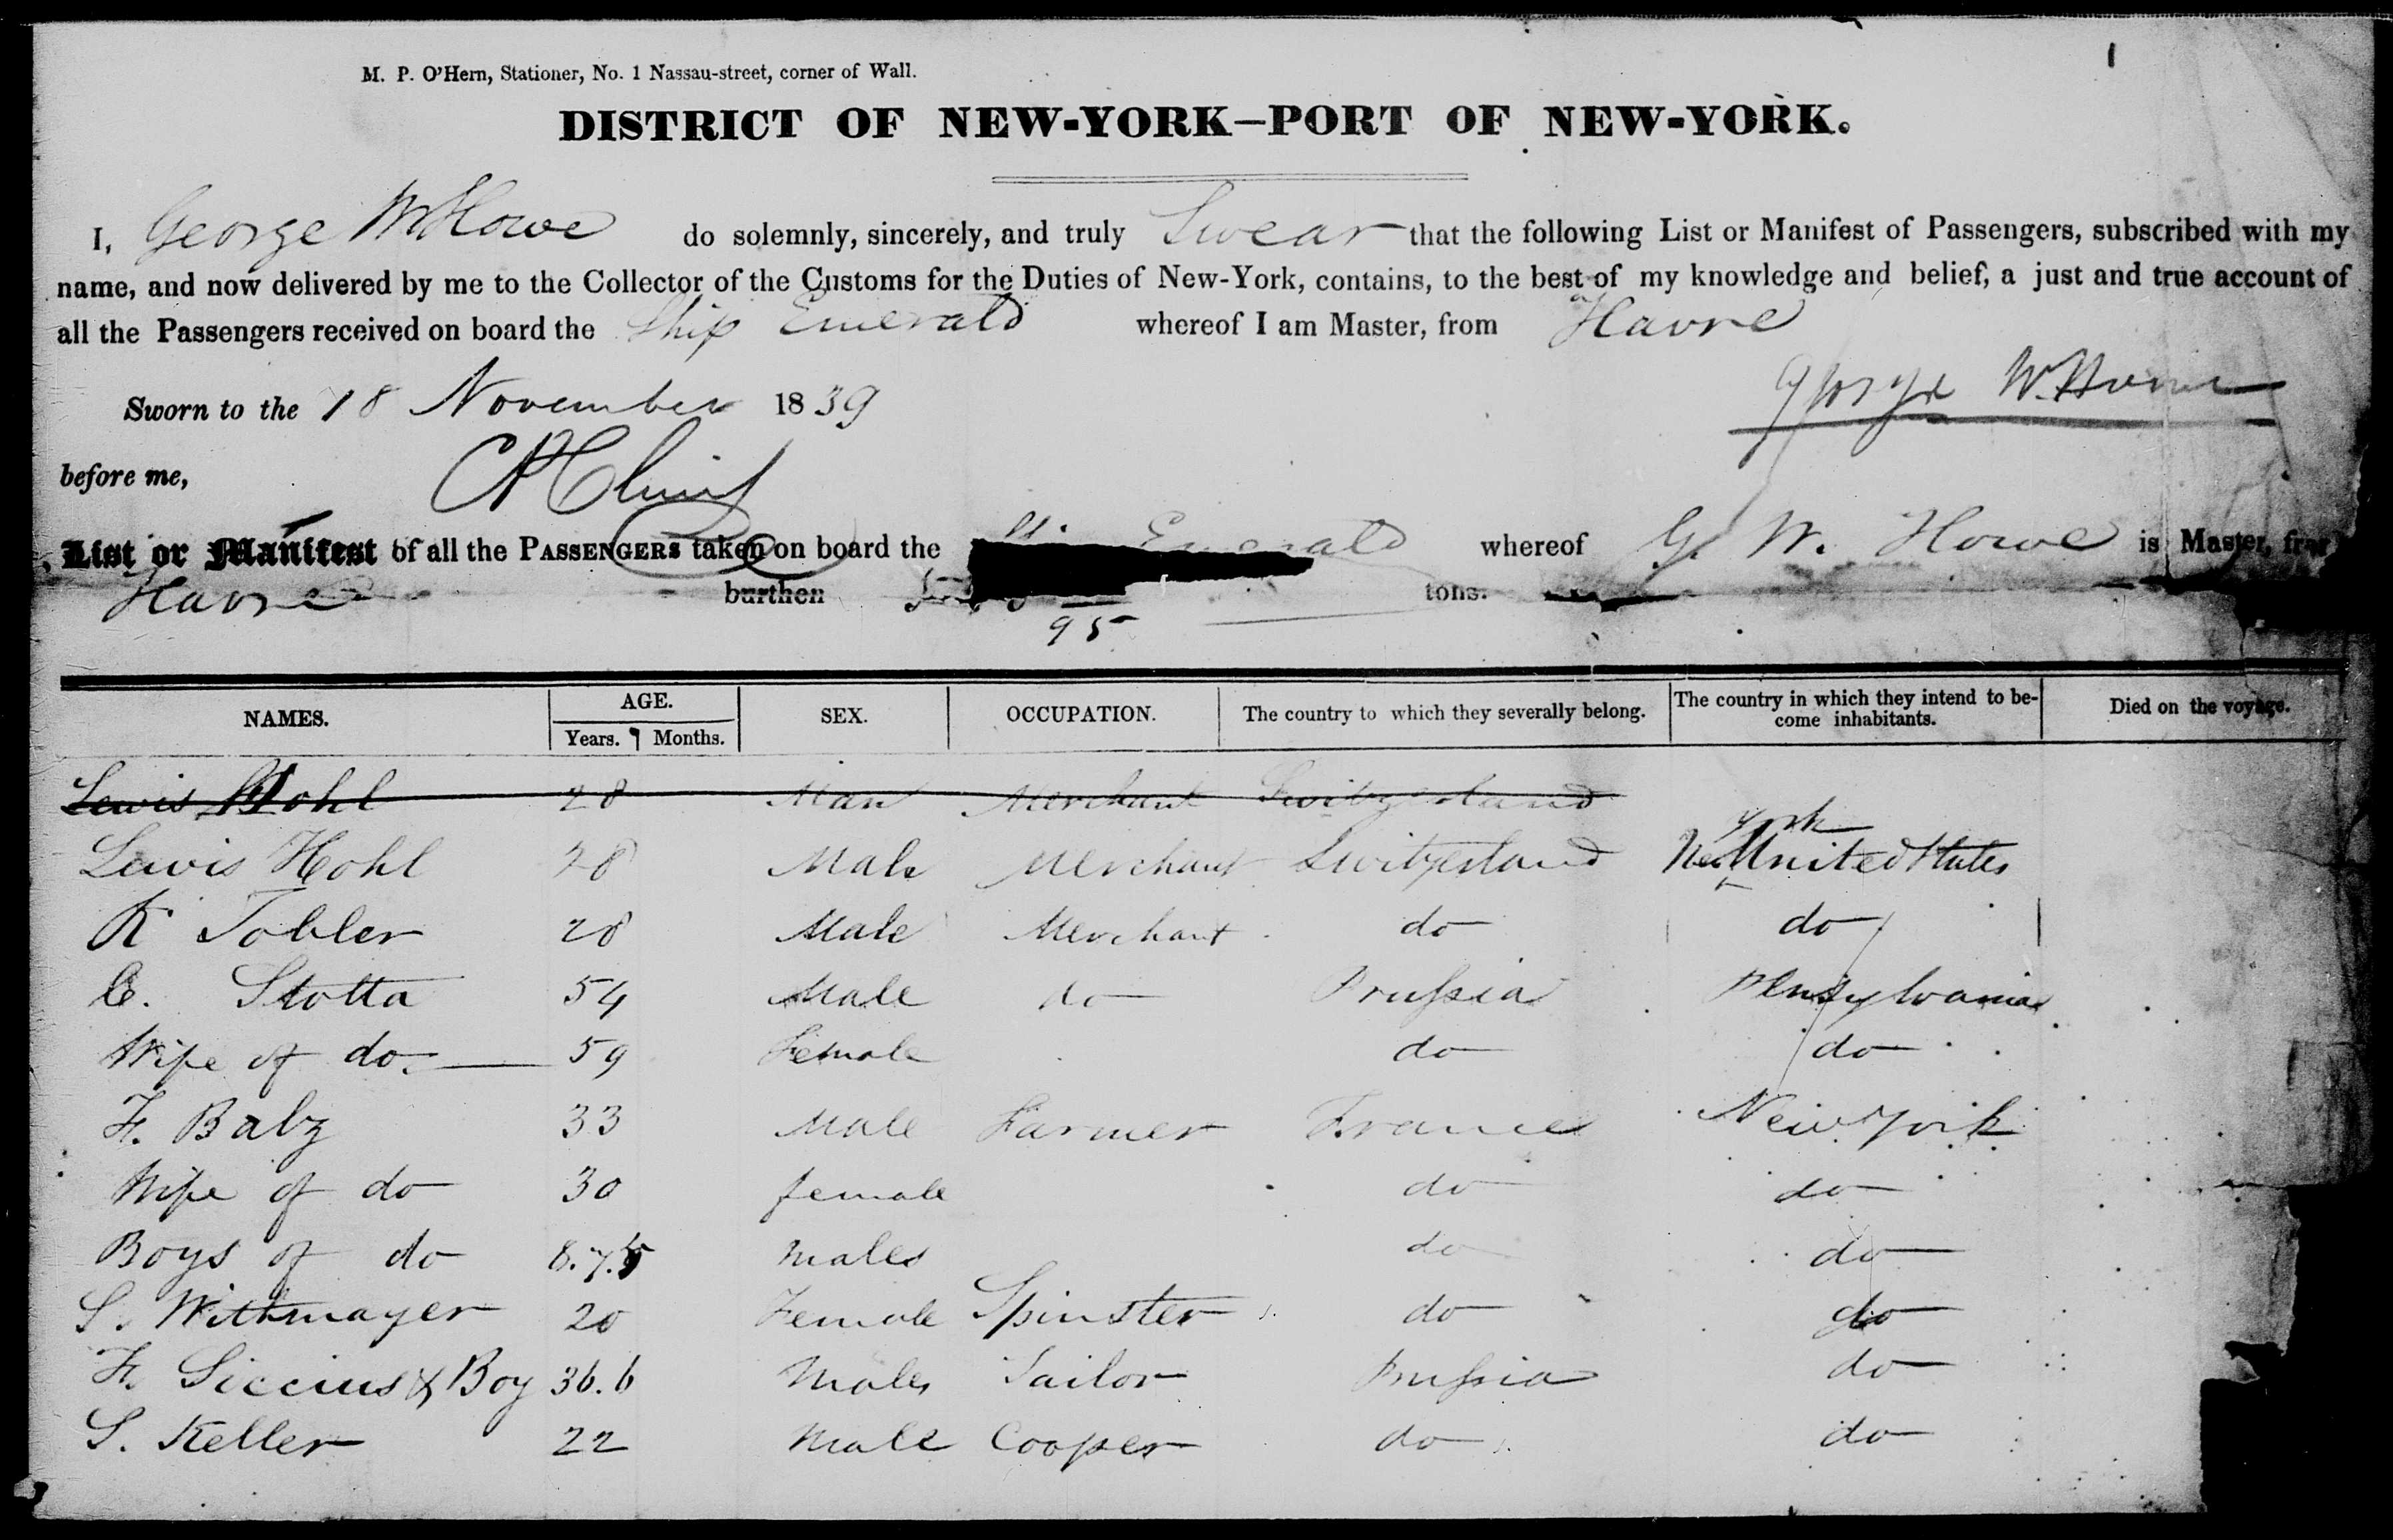 1
M. P. O'Hern, Stationer, No. 1 Nassau-street, corner of Wall.
DISTRICT OF NEW-YORK—PORT OF NEW-YORK.
I, George W Howe do solemnly, sincerely, and truly Swear that the following List or Manifest of Passengers, subscribed with my
name, and now delivered by me to the Collector of the Customs for the Duties of New-York, contains, to the best of my knowledge and belief, a just and true account of
all the Passengers received on board the Ship Emerald whereof I am Master, from Havre
George W. Howe
Sworn to the 18 November 1839
before me,
List or Manifest of all the PASSENGERS taken on board the Emerald whereof G. W. Howe is Master, from
Havre burthen tons.
95
NAMES. AGE. SEX. OCCUPATION. The country to which they severally belong. The country in which they intend to be-
come inhabitants. Died on the voyage.
Years. Months.
Lewis Hohl 28 Man Merchant Switzerland
York
Lewis Hohl 28 Male Merchant Switzerland New United States
K Tobler 28 Male Merchant do do
C. Stotta 54 Male do Prussia Pensylvania
Wife of do 59 Female do do
F. Balz 33 Male Farmer France New York
Wife of do 30 female do do
Boys of do 8.7.5 Males do do
S. Wittmayer 20 Female Spinster do do
F. Siccius & Boy 36.6 Males Tailor Prussia do
S. Keller 22 Male Cooper do do